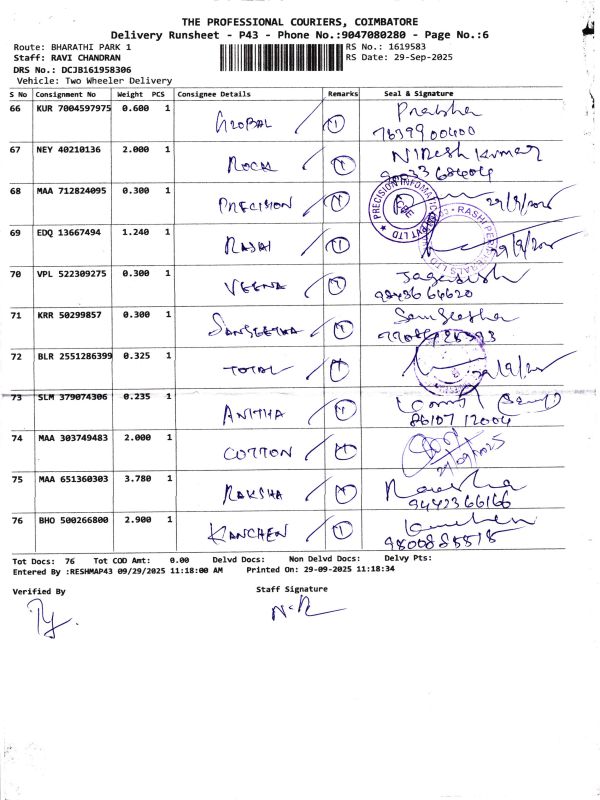 THE PROFESSIONAL COURIERS, COIMBATORE
Delivery Runsheet - P43 - Phone No.:9047080280 - Page No.:6
Route: BHARATHI PARK 1
RS No.: 1619583
Staff: RAVI CHANDRAN
RS Date: 29-Sep-2025
DRS No.: DCJB161958306
Vehicle: Two Wheeler Delivery
S No Consignment No Weight PCS Consignee Details Remarks Seal & Signature
66 KUR 7004597975 0.600 1 GLOBAL Prabha
76399 00400
67 NEY 40210136 2.000 1 ROCK NIRESH KUMAR
68 MAA 712824095 0.300 1 PRECISION PRECISION INFOMATIC PVT LTD 29/9/2025
69 EDQ 13667494 1.240 1 RASHI PERIPHERALS LTD 29/9/2025
70 VPL 522309275 0.300 1 VEENA Jagadish
98436 64620
71 KRR 50299857 0.300 1 SANGEETHA Sangeetha
72 BLR 2551286399 0.325 1 TOTAL
73 SLM 379074306 0.235 1 ANITHA
86107 12004
74 MAA 303749483 2.000 1 COTTON 29/09/2025
75 MAA 651360303 3.780 1 RAKSHA
9442366166
76 BHO 500266800 2.900 1 KANCHEN Kanchen
Tot Docs: 76 Tot COD Amt: 0.00 Delvd Docs: Non Delvd Docs: Delvy Pts:
Entered By :RESHMAP43 09/29/2025 11:18:00 AM Printed On: 29-09-2025 11:18:34
Verified By
Staff Signature